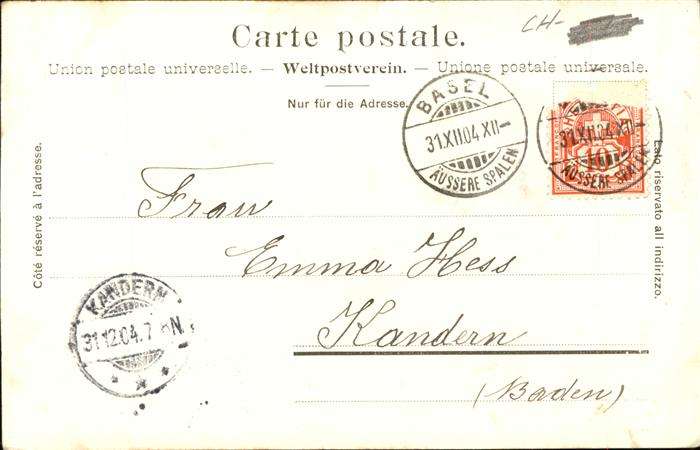 CH-
Carte postale.
Union postale universelle. — Weltpostverein. — Unione postale universale.
Nur für die Adresse.
BASEL
31.XII.04.XII-
ÄUSSERE SPALEN
HELVETIA
10
31.XII.04.XII-
ÄUSSERE SPALEN
Côté réservé à l'adresse.
Lato riservato all indirizzo.
Frau
Emma Hess
Kandern
(Baden)
KANDERN
31.12.04.7 N.